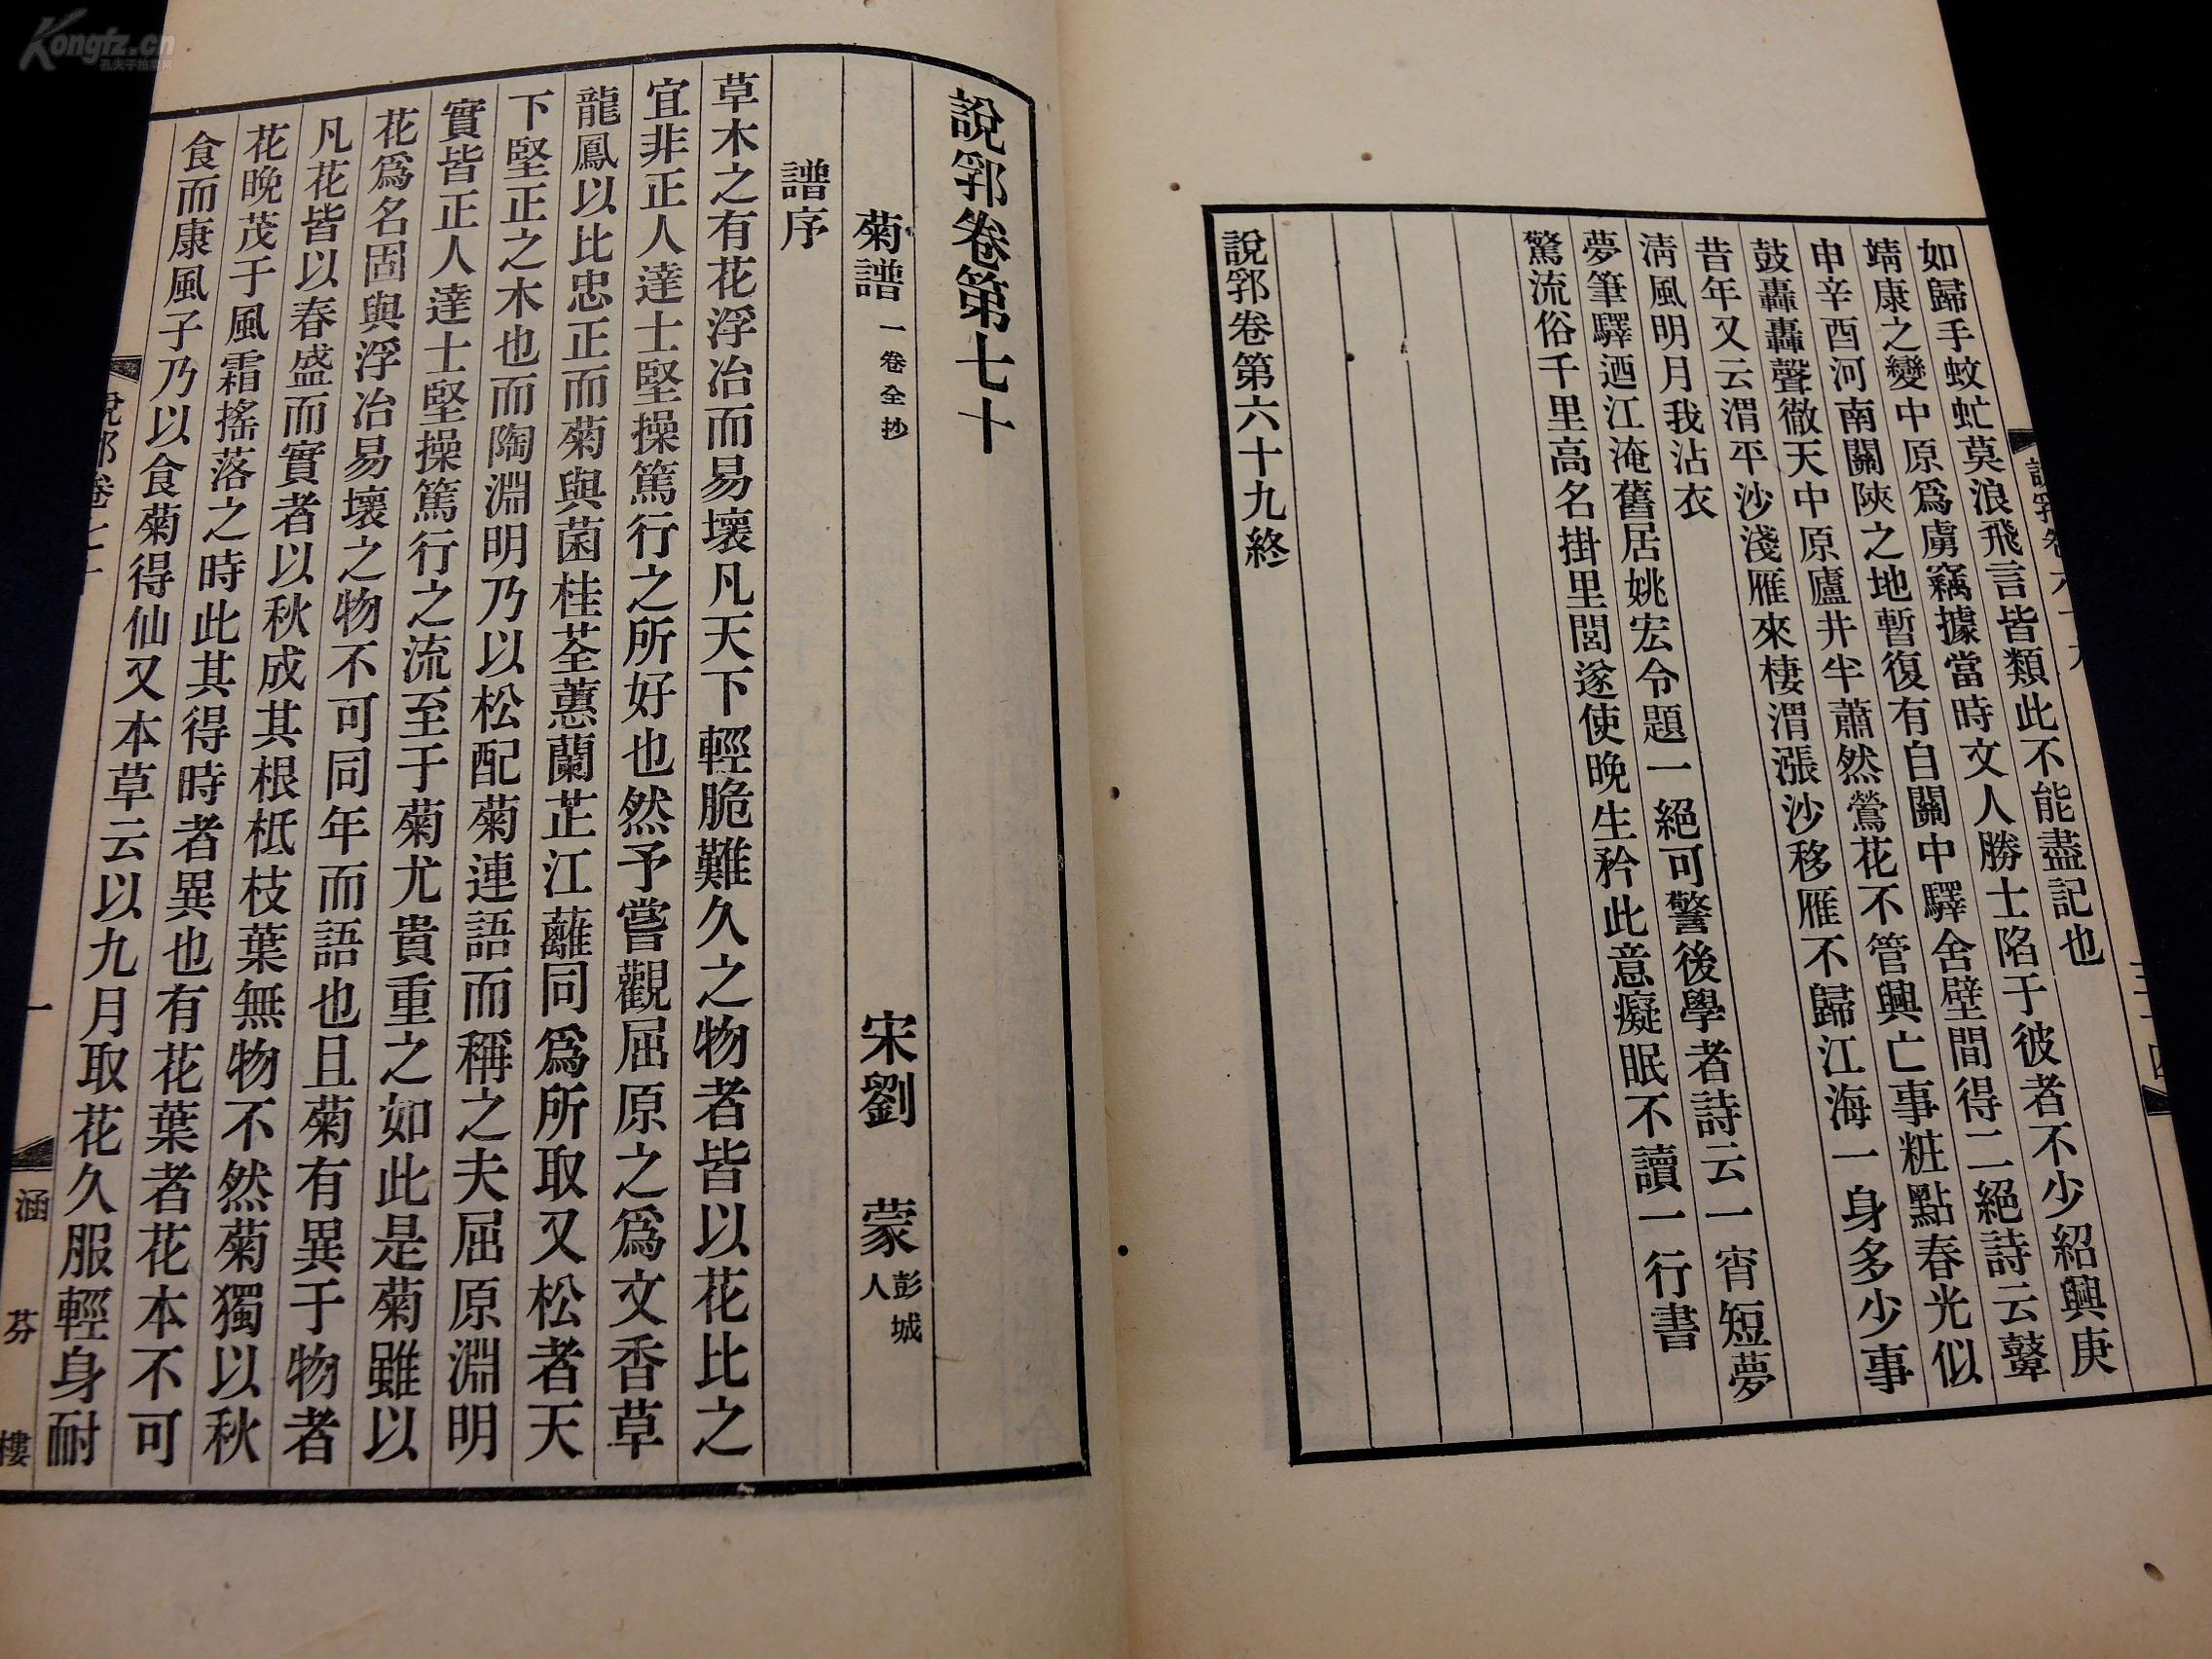 如歸手蚊虻莫浪飛言皆類此不能盡記也
靖康之變中原爲虜竊據當時文人勝士陷于彼者不少紹興庚
申辛酉河南關陝之地暫復有自關中驛舍壁間得二絕詩云鼙
鼓轟轟聲徹天中原廬井半蕭然鶯花不管興亡事粧點春光似
昔年又云渭平沙淺雁來棲渭漲沙移雁不歸江海一身多少事
淸風明月我沾衣
夢筆驛迺江淹舊居姚宏令題一絕可警後學者詩云一宵短夢
驚流俗千里高名掛里閭遂使晚生矜此意癡眠不讀一行書
說郛卷第六十九終
說郛卷第七十
菊譜一卷全抄
宋劉 蒙彭城人
譜序
草木之有花浮冶而易壞凡天下輕脆難久之物者皆以花比之
宜非正人達士堅操篤行之所好也然予嘗觀屈原之爲文香草
龍鳳以比忠正而菊與菌桂荃蕙蘭芷江蘺同爲所取又松者天
下堅正之木也而陶淵明乃以松配菊連語而稱之夫屈原淵明
實皆正人達士堅操篤行之流至于菊尤貴重之如此是菊雖以
花爲名固與浮冶易壞之物不可同年而語也且菊有異于物者
凡花皆以春盛而實者以秋成其根柢枝葉無物不然菊獨以秋
花晚茂于風霜搖落之時此其得時者異也有花葉者花本不可
食而康風子乃以食菊得仙又本草云以九月取花久服輕身耐
說郛卷七十
一
涵芬樓
Kongfz.cn